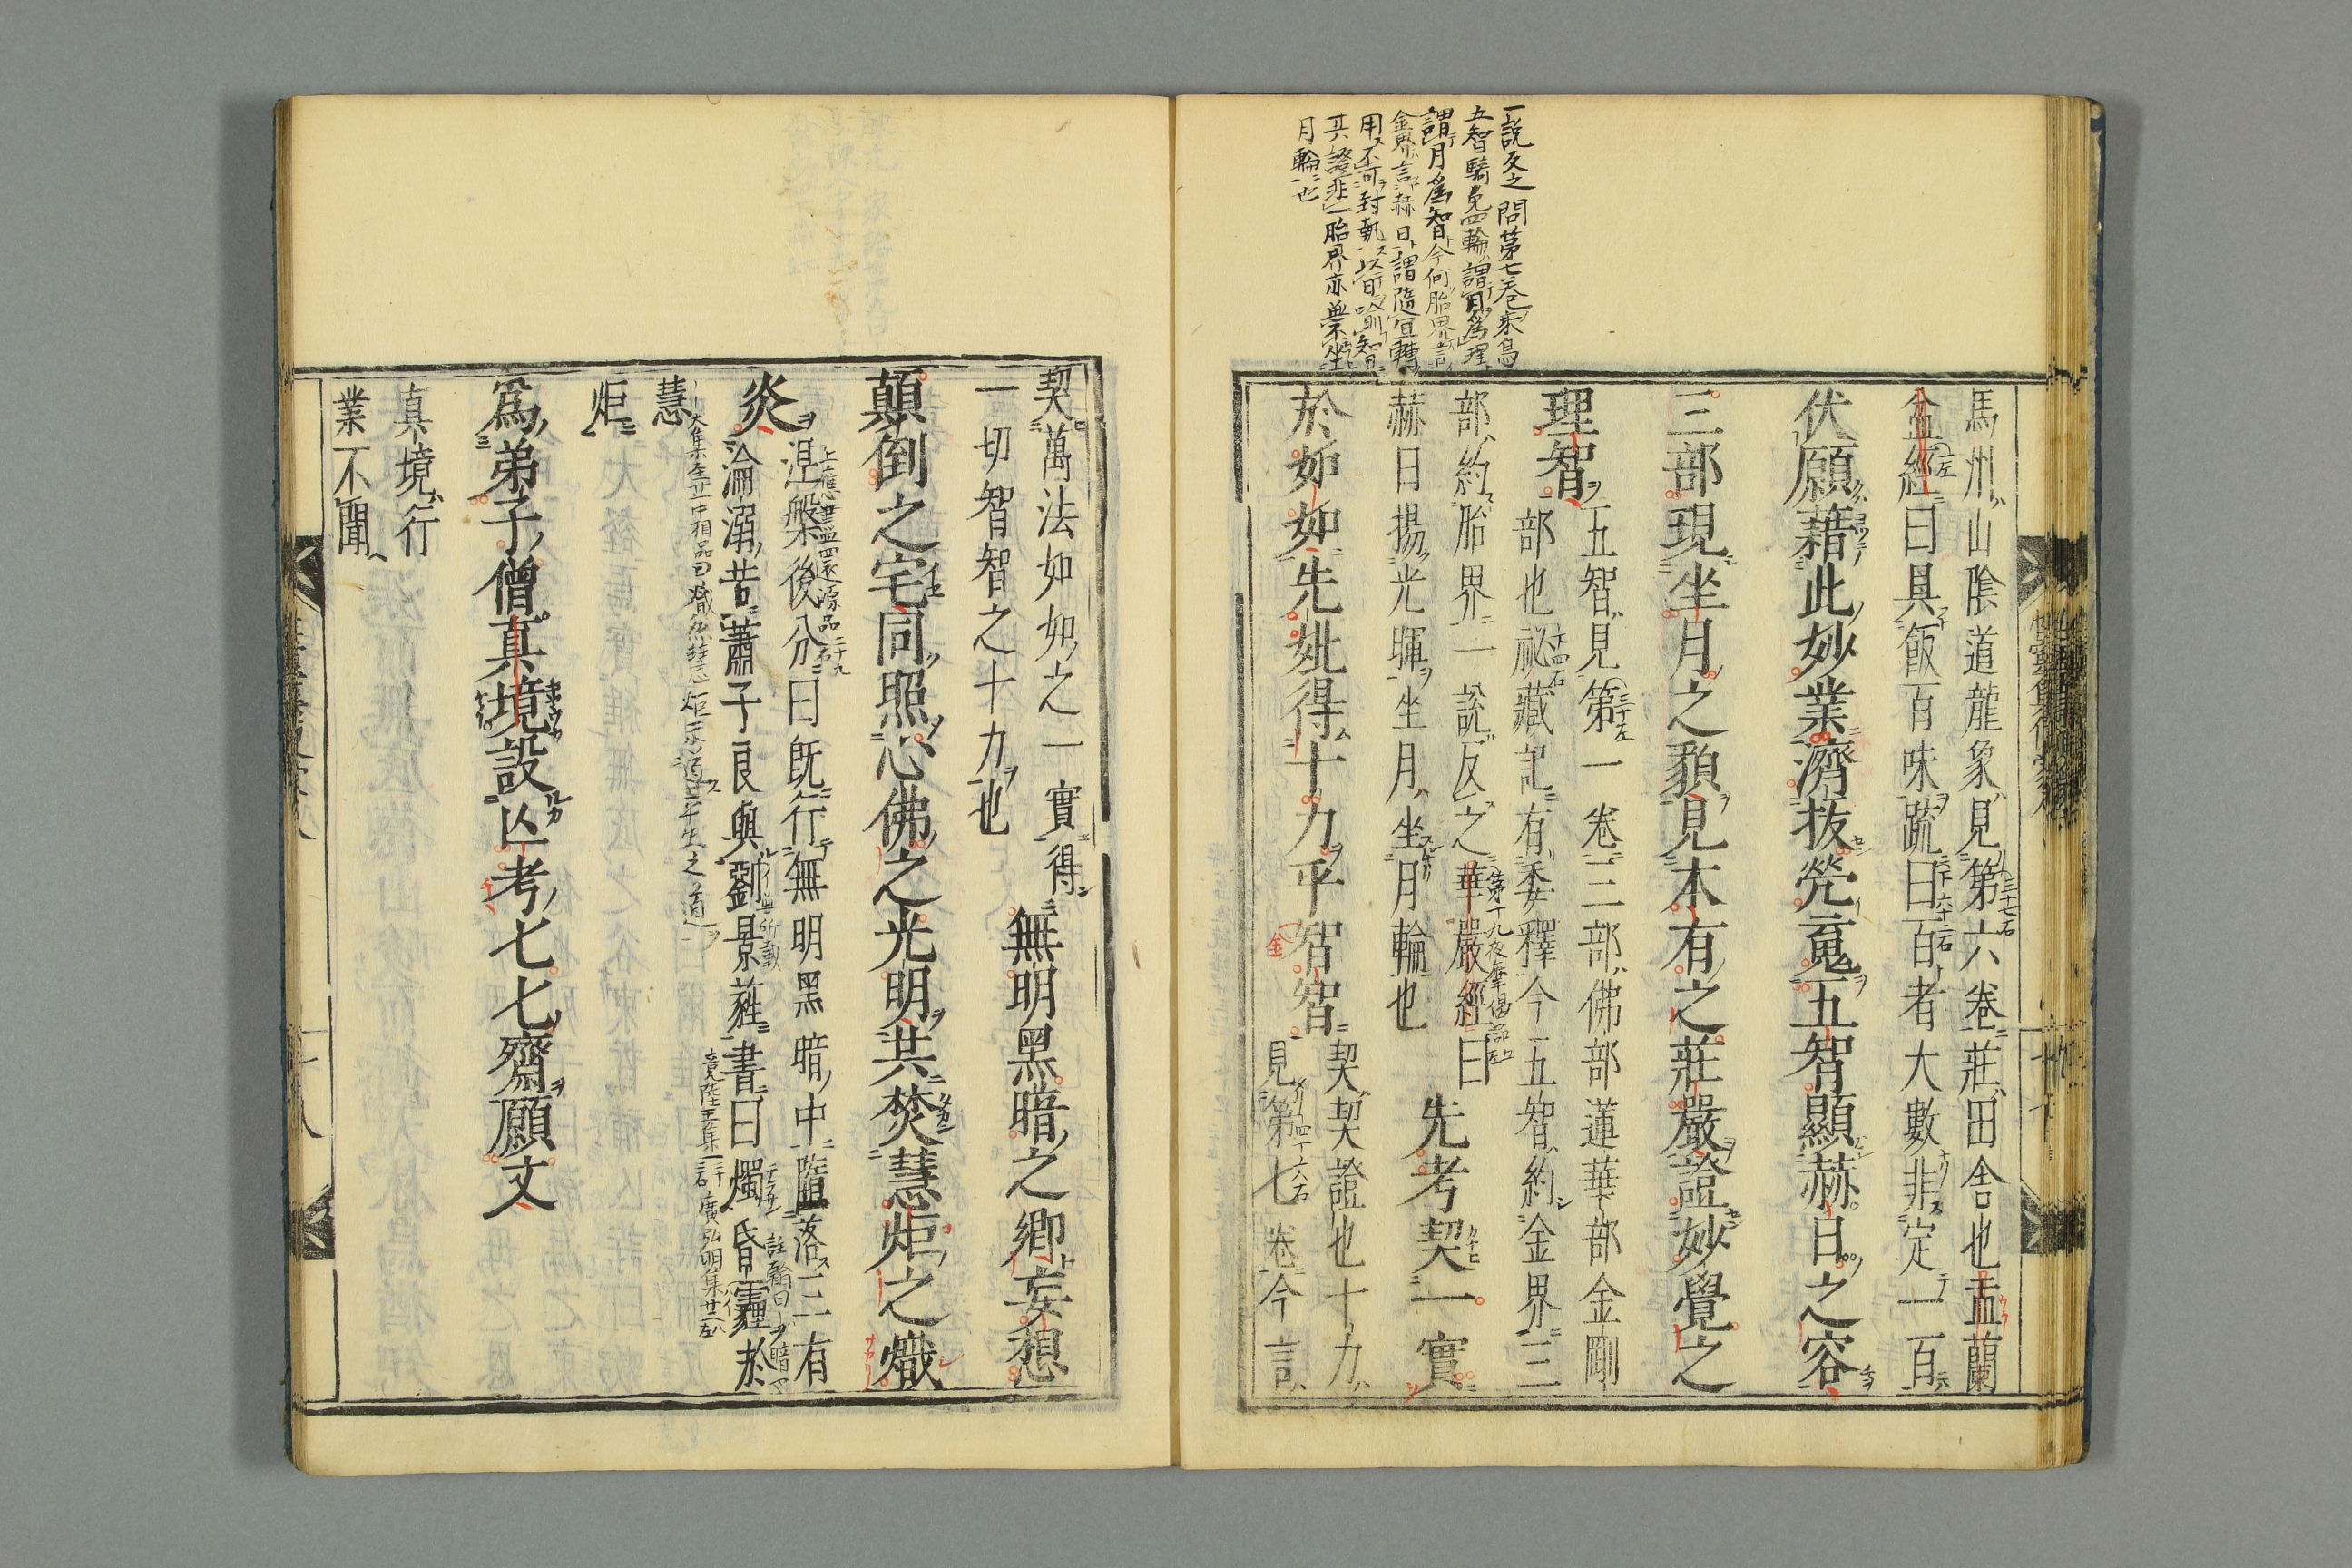 一說反之問第七卷家烏
五智騎兔四輪謂日爲理
謂月爲智今何胎界言
金界言赫日謂隨宜轉
用不可封執以日喻智
其證非一胎界亦無坐
月輪也
馬州山陰道龍象見第六卷莊田舍也盂蘭
三十七右
盆經曰具飯百味䟽曰百者大數非定一百
伏願藉此妙業濟拔煢䰟五智顯赫日之容
三部現坐月之貌見本有之莊嚴證妙覺之
理智
五智見第一卷三部佛部蓮華部金剛
三十左
部也祕藏記有委釋今五智約金界三
十四右
部約胎界一說反之華嚴經曰
第十九夜摩偈品
赫日揚光暉坐月坐月輪也
先考契一實
於如如先妣得十力乎智智
金
契契證也十力
見第七卷今言
四十六右
契萬法如如之一實得
一切智智之十力也
無明黑暗之鄉妄想
顛倒之宅同照心佛之光明共焚慧炬之熾
炎
涅槃後分曰既行無明黑暗中墮落三有
上應盡還源品二十九右
淪溺苦蕭子良與劉景蕤書曰燭昏霾於
廣弘明集
慧
大集
炬
爲弟子僧真境設亡考七七齋願文
真境行
業不聞